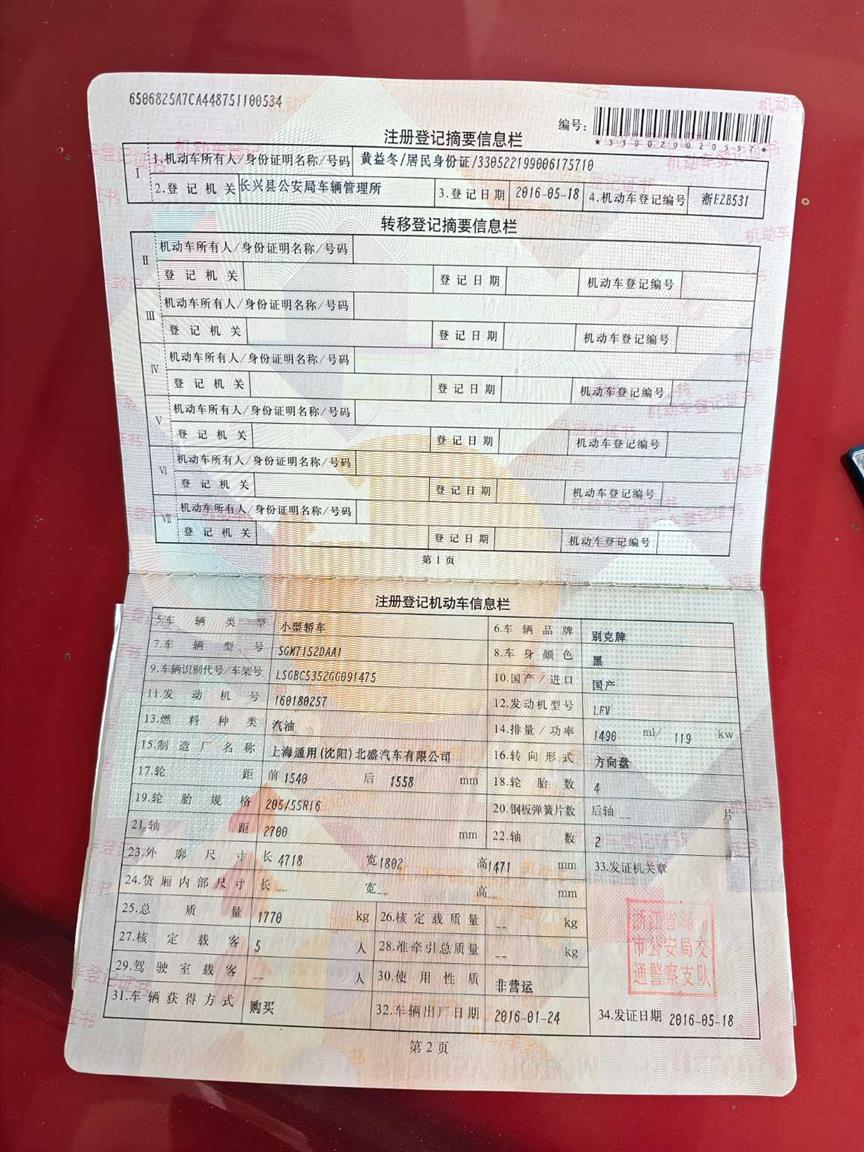 6506825A7CA448751100534
编号：
*330020020557*
注册登记摘要信息栏
Ⅰ 1.机动车所有人/身份证明名称/号码 黄益冬/居民身份证/330522199006175710
2.登记机关 长兴县公安局车辆管理所 3.登记日期 2016-05-18 4.机动车登记编号 浙EZB531
转移登记摘要信息栏
Ⅱ 机动车所有人/身份证明名称/号码
登记机关 登记日期 机动车登记编号
Ⅲ 机动车所有人/身份证明名称/号码
登记机关 登记日期 机动车登记编号
Ⅳ 机动车所有人/身份证明名称/号码
登记机关 登记日期 机动车登记编号
Ⅴ 机动车所有人/身份证明名称/号码
登记机关 登记日期 机动车登记编号
Ⅵ 机动车所有人/身份证明名称/号码
登记机关 登记日期 机动车登记编号
Ⅶ 机动车所有人/身份证明名称/号码
登记机关 登记日期 机动车登记编号
第1页
注册登记机动车信息栏
5.车辆类型 小型轿车 6.车辆品牌 别克牌
7.车辆型号 SGM7152DAA1 8.车身颜色 黑
9.车辆识别代号/车架号 LSGBC5352GG091475 10.国产/进口 国产
11.发动机号 160180257 12.发动机型号 LFV
13.燃料种类 汽油 14.排量/功率 1490 ml/ 119 kw
15.制造厂名称 上海通用(沈阳)北盛汽车有限公司 16.转向形式 方向盘
17.轮距 前 1540 后 1558 mm 18.轮胎数 4
19.轮胎规格 205/55R16 20.钢板弹簧片数 后轴 -- 片
21.轴距 2700 mm 22.轴数 2
23.外廓尺寸 长 4718 宽 1802 高 1471 mm 33.发证机关章
24.货厢内部尺寸 长 -- 宽 -- 高 -- mm
25.总质量 1770 kg 26.核定载质量 -- kg
27.核定载客 5 人 28.准牵引总质量 -- kg
29.驾驶室载客 -- 人 30.使用性质 非营运
31.车辆获得方式 购买 32.车辆出厂日期 2016-01-24 34.发证日期 2016-05-18
浙江省湖
州市公安局交
通警察支队
第2页